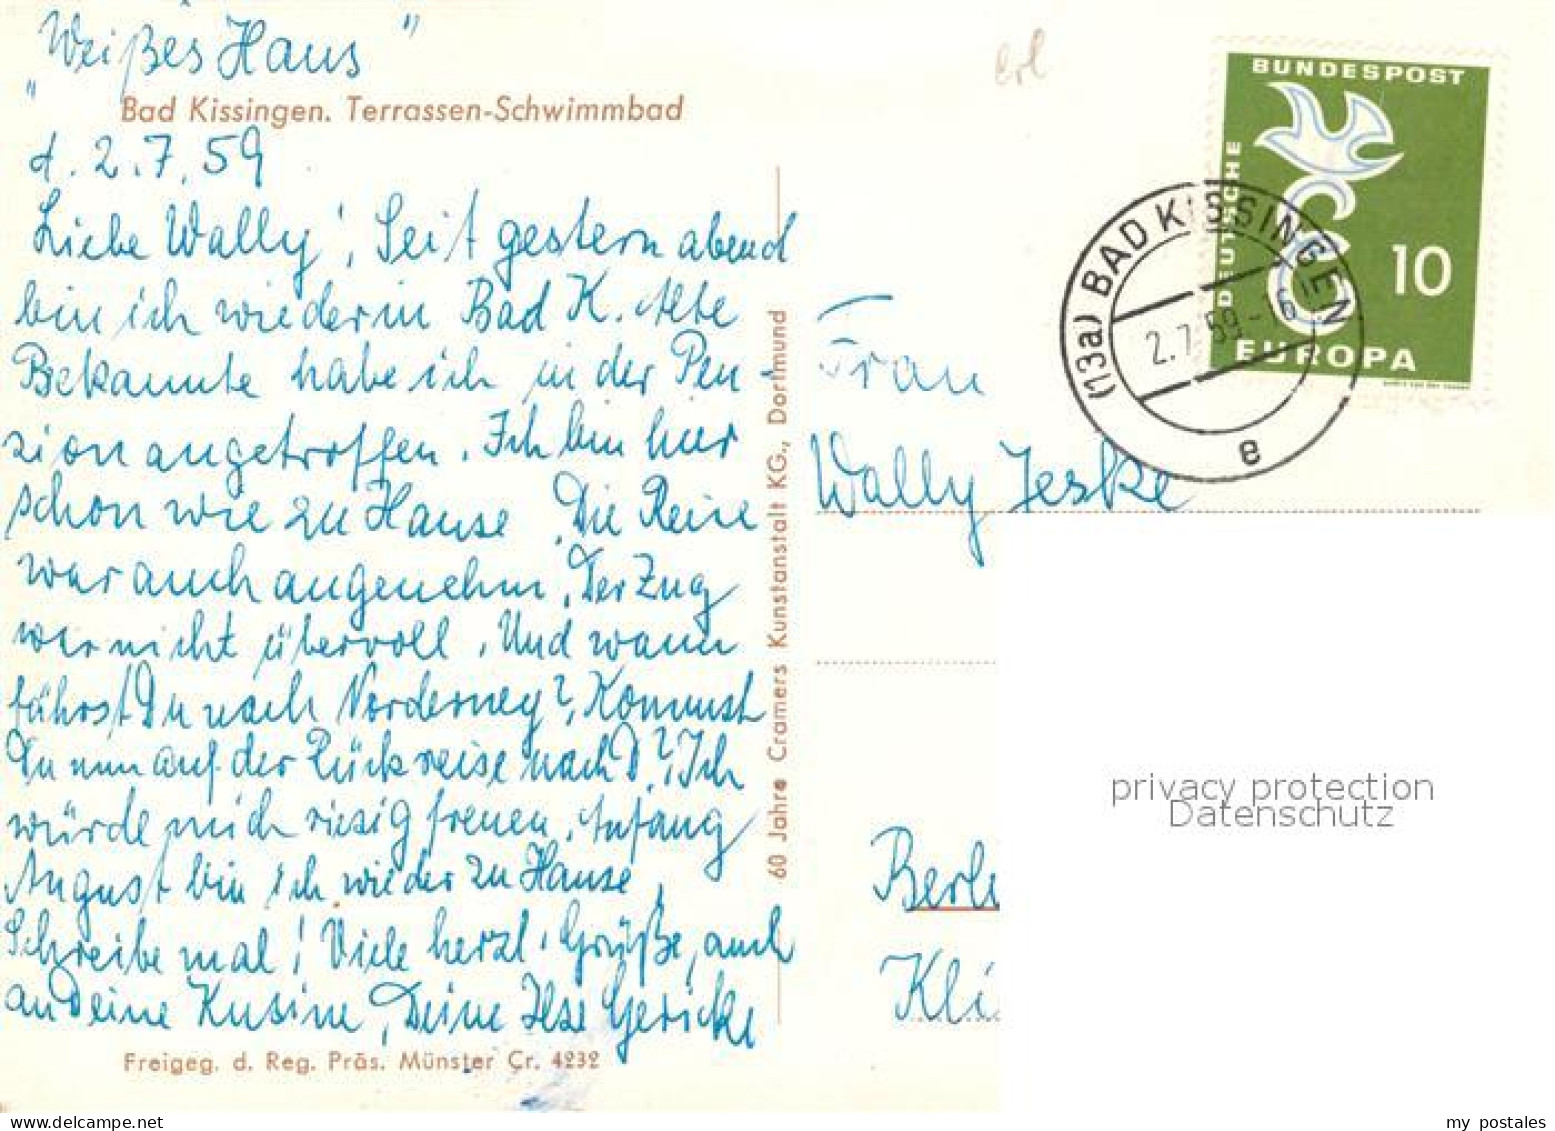 "Weißes Haus"
Bad Kissingen. Terrassen-Schwimmbad
d. 2.7.59
Liebe Wally! Seit gestern abend
bin ich wieder in Bad K. Alte
Bekannte habe ich in der Pen-
sion angetroffen. Ich bin hier
schon wie zu Hause. Die Reise
war auch angenehm. Der Zug
war nicht übervoll. Und wann
fährst Du nach Norderney? Kommst
Du nun auf der Rückreise nach D? Ich
würde mich riesig freuen. Anfang
August bin ich wieder zu Hause.
Schreibe mal! Viele herzl. Grüße, auch
an Deine Kusine, Deine Ilse Gericke
Freigeg. d. Reg. Präs. Münster Cr. 4232
60 Jahre Cramers Kunstanstalt KG., Dortmund
erl
DEUTSCHE
BUNDESPOST
10
EUROPA
(13a) BAD KISSINGEN
2.7.59.-16
e
Frau
Wally Jeske
Berli
Kli
privacy protection
Datenschutz
my postales